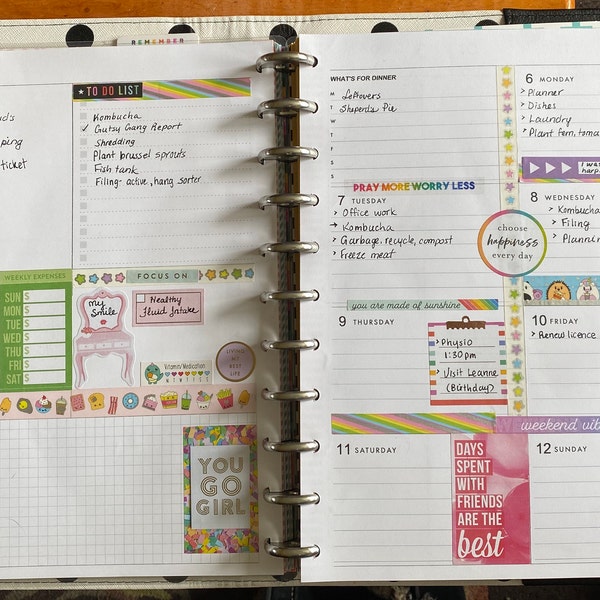 REMEMBER
★ TO DO LIST
Kombucha
✓ Gutsy Gang Report
shredding
Plant brussel sprouts
Fish tank
Filing- active, hang sorter
ticket
WEEKLY EXPENSES
SUN $
MON $
TUE $
WED $
THU $
FRI $
SAT $
FOCUS ON
My Smile
Healthy
Fluid Intake
Vitamin/Medication
M T W T F S S
LIVING
MY BEST
LIFE
YOU
GO
GIRL
WHAT'S FOR DINNER
M Leftovers
T Sheperd's Pie
W
T
F
S
S
6 MONDAY
> Planner
> Dishes
> Laundry
> Plant fern, toma
I WAS
PRAY MORE WORRY LESS
7 TUESDAY
> Office work
→ Kombucha
> Garbage, recycle, compost
> Freeze meat
8 WEDNESDAY
> Kombucha
> Filing
> Planning
choose
happiness
every day
you are made of sunshine
9 THURSDAY
> Physio
1:30 pm
> Visit Leanne
(Birthday)
10 FRIDAY
> Renew licence
weekend vib
11 SATURDAY
DAYS
SPENT
WITH
FRIENDS
ARE THE
best
12 SUNDAY